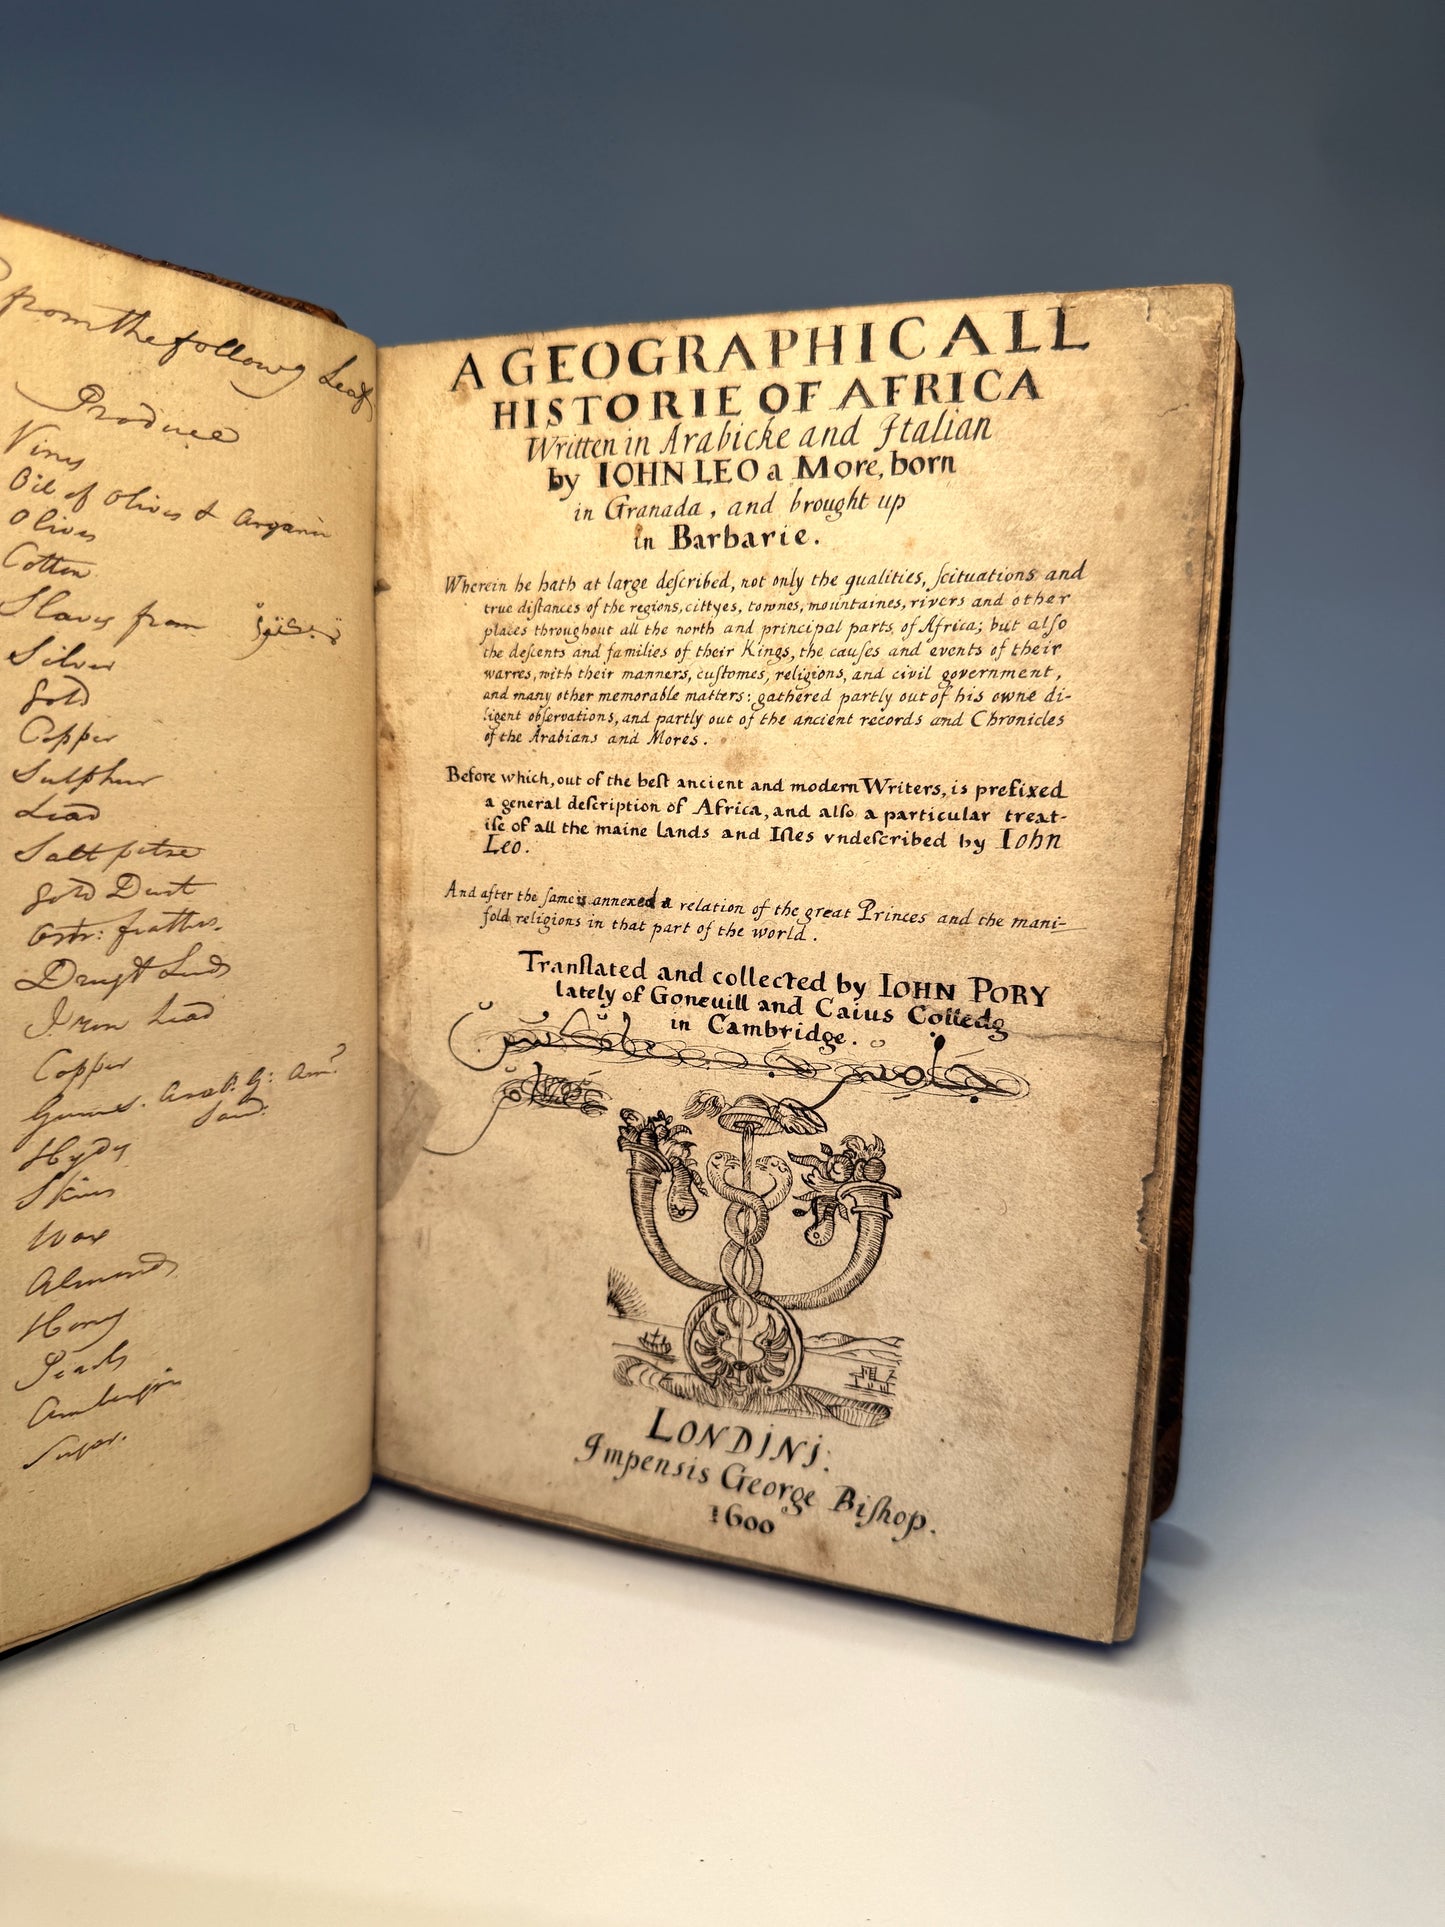 from the followg Leaf
Produce
Vines
Oil of Olives & Argann
Olives
Cotton
Slaves from
Silver
Gold
Copper
Sulphur
Lead
Saltpetre
Gold Dust
Ostr: feathrs.
Iron Lead
Copper
Gums.
Hyds
Skins
Wax
Almonds
Honey
A GEOGRAPHICALL
HISTORIE OF AFRICA
Written in Arabicke and Italian
by IOHN LEO a More, born
in Granada, and brought up
in Barbarie.
Wherein he hath at large deſcribed, not only the qualities, ſcituations and
true diſtances of the regions, cittyes, townes, mountaines, rivers and other
places throughout all the north and principal parts of Africa; but alſo
the deſcents and families of their Kings, the cauſes and events of their
warres, with their manners, cuſtomes, religions, and civil government,
and many other memorable matters: gathered partly out of his owne di-
ligent obſervations, and partly out of the ancient records and Chronicles
of the Arabians and Mores.
Before which, out of the beſt ancient and modern Writers, is prefixed
a general deſcription of Africa, and alſo a particular treat-
iſe of all the maine lands and Iſles vndeſcribed by Iohn
Leo.
And after the ſame is annexed a relation of the great Princes and the mani-
fold religions in that part of the world.
Tranſlated and collected by IOHN PORY
lately of Goneuill and Caius Colledg
in Cambridge.
LONDINI:
Impensis George Biſhop.
1600